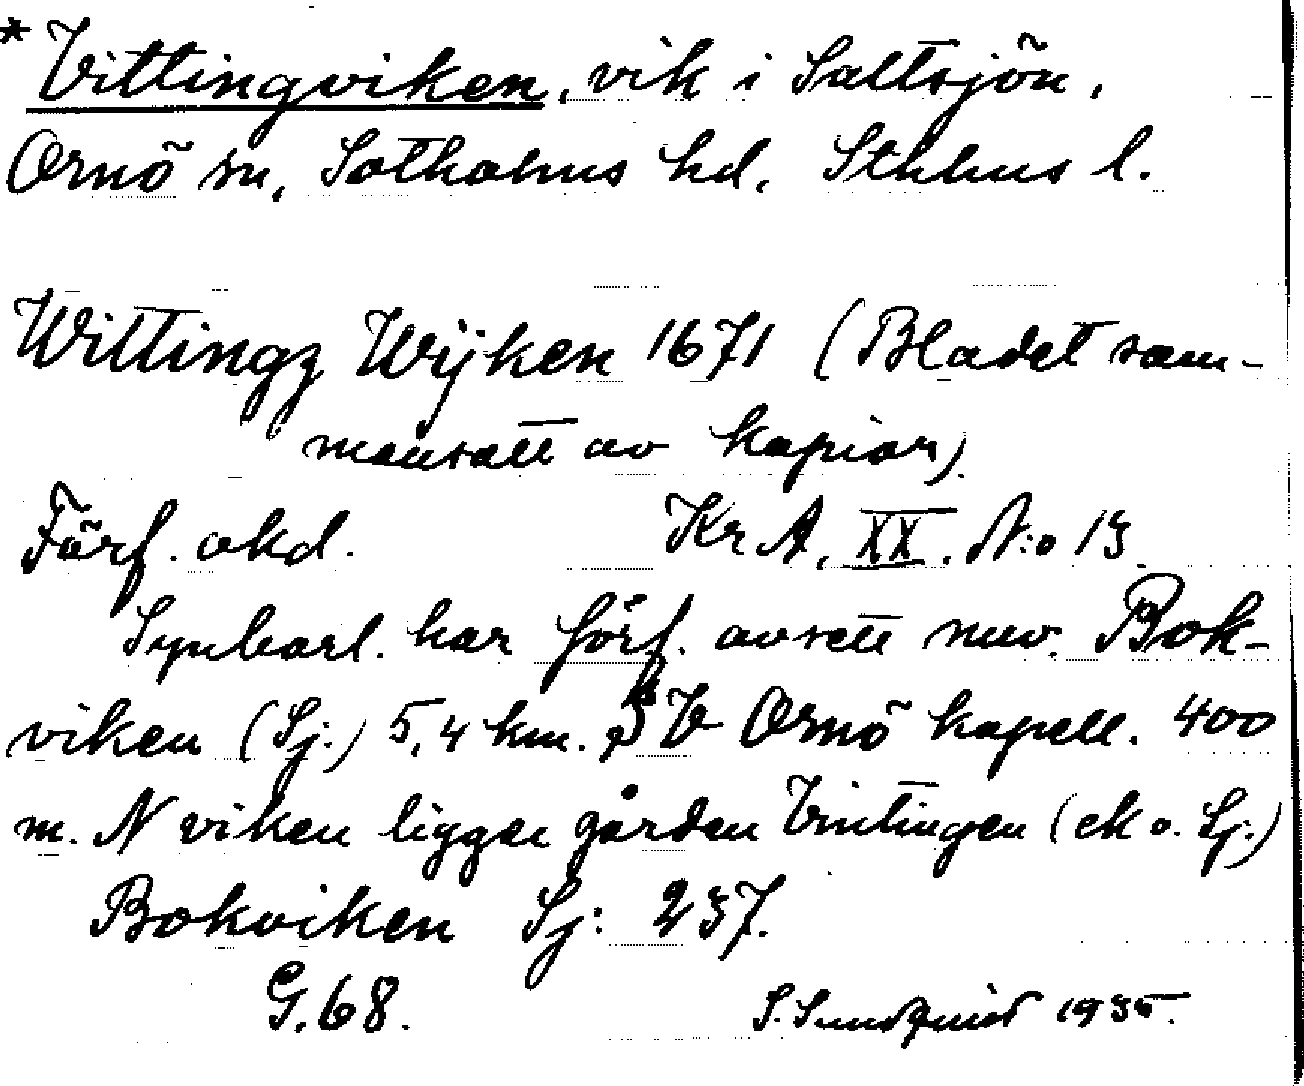 * Vittingviken, vik i Saltsjön,
Ornö sn, Sotholms hd, Sthlms l.
Wittingz Wijken 1671 (Bladet sam-
mansatt av kopior)
Förf. okd. KrA, XX. N:o 13.
Synbarl. har förf. avsett nuv. Bok-
viken (Sj.) 5,4 km. SV Ornö kapell. 400
m. N viken ligger gården Vintingen (ek o. Sj.)
Bokviken Sj: 237.
G. 68. S. Sundquist 1935.